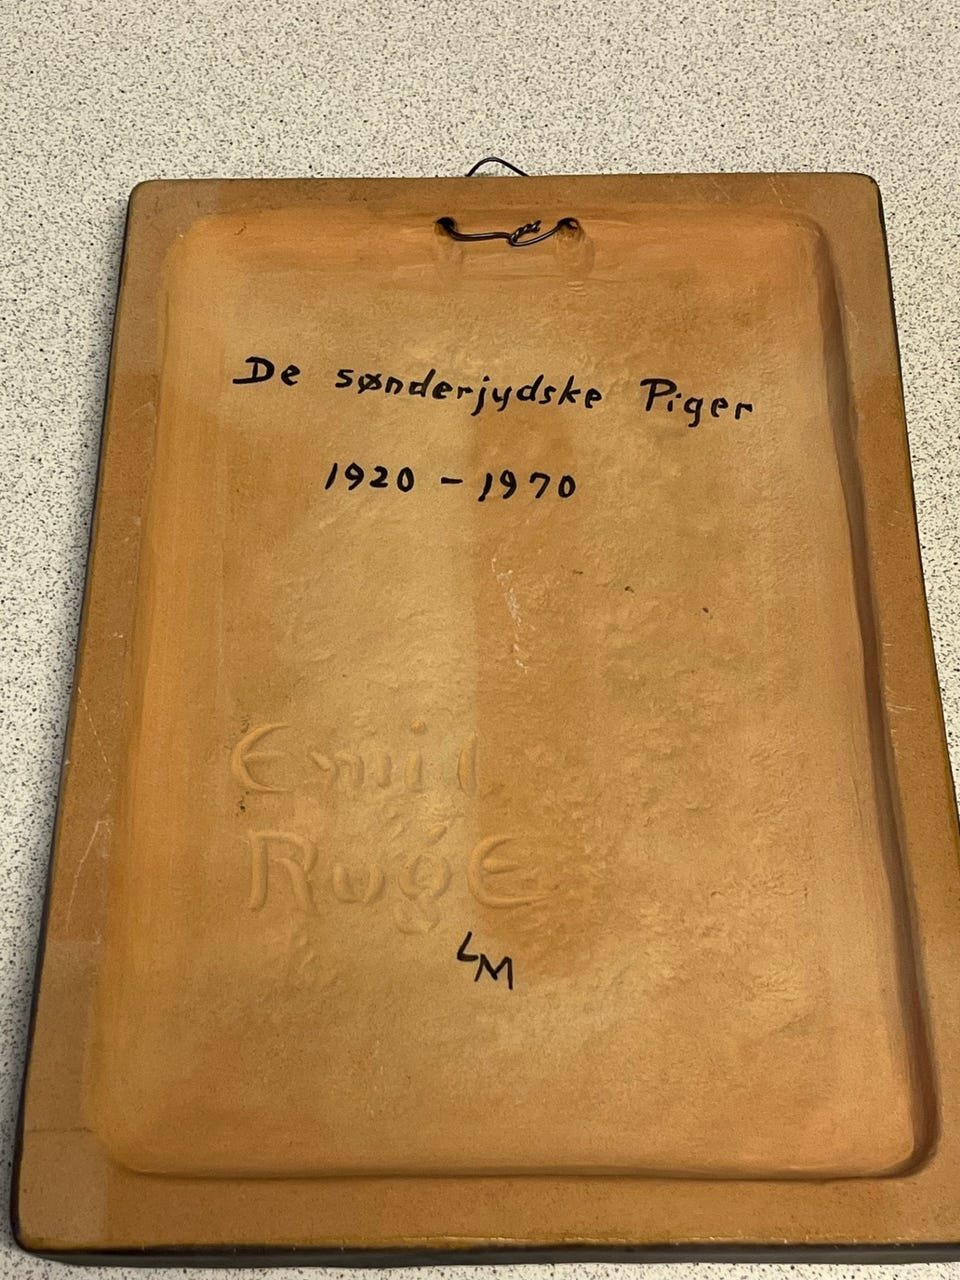 De sønderjydske Piger
1920 - 1970
Emil
RugE
LM